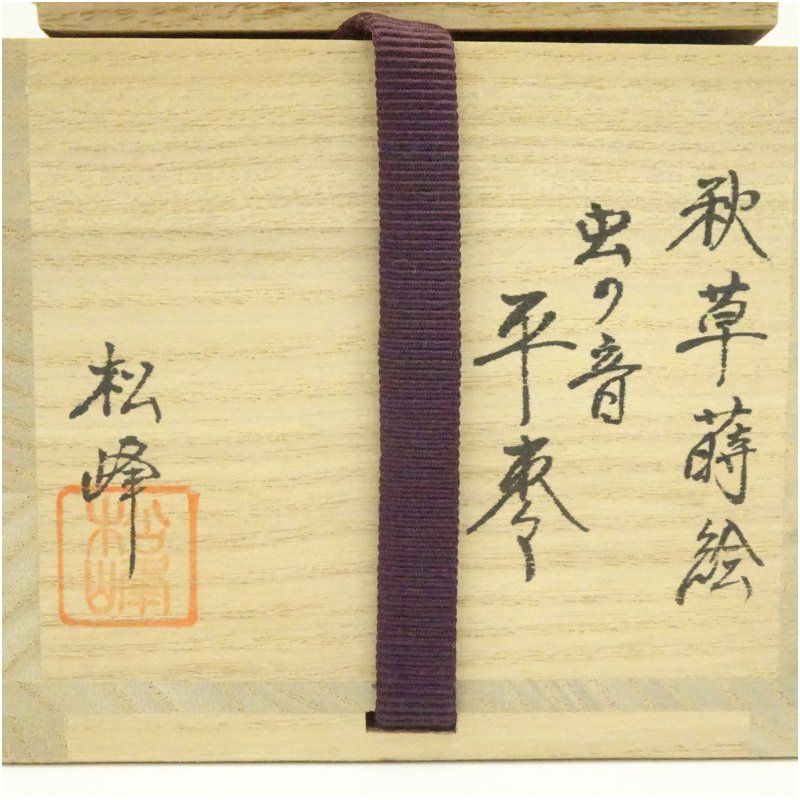 秋草蒔絵
虫の音
平棗
松峰
松峰